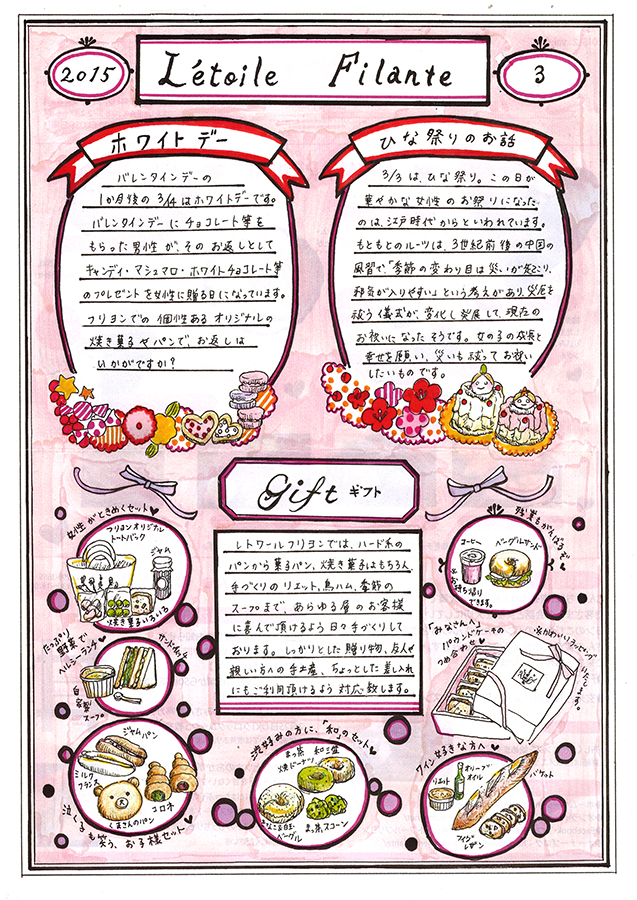 2015
L'étoile Filante
3
ホワイトデー
バレンタインデーの
1か月後の3/14はホワイトデーです。
バレンタインデーにチョコレート等を
もらった男性が、そのお返しとして
キャンディ・マシュマロ・ホワイトチョコレート等
のプレゼントを女性に贈る日になっています。
フリヨンでの個性あるオリジナルの
焼き菓子やパンで、お返しは
いかがですか?
ひな祭りのお話
3/3は、ひな祭り。この日が
華やかな女性のお祭りになった
のは、江戸時代からといわれています。
もともとのルーツは、3世紀前後の中国の
風習で、「季節の変わり目は災いが起こり、
邪気が入りやすい」という考えがあり、災厄を
祓う儀式が、変化し発展して、現在の
お祝いになったそうです。女の子の成長と
幸せを願い、災いも祓ってお祝い
したいものです。
Gift ギフト
レトワールフリヨンでは、ハード系の
パンから菓子パン、焼き菓子はもちろん、
手づくりのリエット、鳥ハム、季節の
スープまで、あらゆる層のお客様
に喜んで頂けるよう日々手づくりして
おります。しっかりとした贈り物、友人や
親しい方への手土産、ちょっとした差し入れ
にもご利用頂けるよう対応致します。
女性がときめくセット♥
フリヨンオリジナル
トートバック
ジャム
焼き菓子いろいろ
「たっぷり
野菜で」
ヘルシーランチ♥
サンドイッチ
自家製
スープ
ジャムパン
ミルク
フランス
コロネ
くまさんのパン
泣く子も笑う、お子様セット♥
渋好みの方に、「和」のセット♥
まっ茶 和三盆
焼ドーナツ
きなこ&白玉
ベーグル
まっ茶スコーン
残業もがんばるぞ
コーヒー
ベーグルサンド
※お持ち帰り
できます。
「みなさんへ」
パウンドケーキの
つめ合わせ♥
※かわいいラッピング
いたします。
ワイン好きな方へ♥
リエット
オリーブ
オイル
バゲット
フィグ
レザン